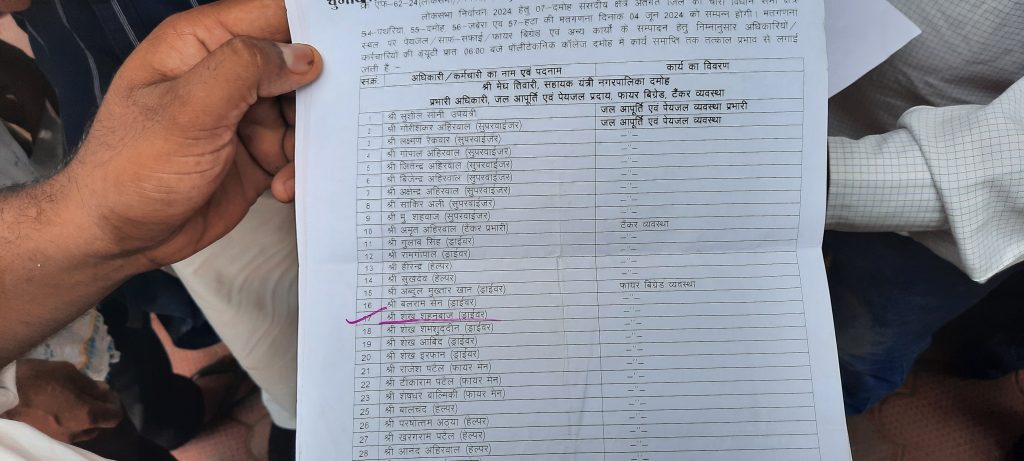 लोकसभा निर्वाचन 2024 हेतु 07–दमोह संसदीय क्षेत्र अंतर्गत जिले की चारों विधान सभा क्षेत्र
54–पथरिया 55–दमोह 56–जबेरा एवं 57–हटा की मतगणना दिनांक 04 जून 2024 को सम्पन्न होगी। मतगणना
स्थल पर पेयजल/साफ–सफाई/फायर बिग्रेड एवं अन्य कार्यो के सम्पादन हेतु निम्नानुसार अधिकारियों/
कर्मचारियों की डयूटी प्रातः 06:00 बजे पॉलीटेकनिक कॉलेज दमोह में कार्य समाप्ति तक तत्काल प्रभाव से लगाई
जाती है –
सं.क्रं. अधिकारी/कर्मचारी का नाम एवं पदनाम कार्य का विवरण
श्री मेघ तिवारी, सहायक यंत्री नगरपालिका दमोह
प्रभारी अधिकारी, जल आपूर्ति एवं पेयजल प्रदाय, फायर बिग्रेड, टैंकर व्यवस्था
1 श्री सुशील सोनी उपयंत्री जल आपूर्ति एवं पेयजल व्यवस्था प्रभारी
2 श्री गौरीशंकर अहिरवाल (सुपरवाईजर) जल आपूर्ति एवं पेयजल व्यवस्था
3 श्री लक्ष्मण रैकवार (सुपरवाईजर) –"–
4 श्री गोपाल अहिरवाल (सुपरवाईजर) –"–
5 श्री जितेन्द्र अहिरवाल (सुपरवाईजर) –"–
6 श्री बिजेन्द्र अहिरवाल (सुपरवाईजर) –"–
7 श्री अक्षेन्द्र अहिरवाल (सुपरवाईजर) –"–
8 श्री साकिर अली (सुपरवाईजर) –"–
9 श्री मु. शहवाज (सुपरवाईजर) –"–
10 श्री अमृत अहिरवाल (टैंकर प्रभारी) टैंकर व्यवस्था
11 श्री गुलाब सिंह (ड्राईवर) –"–
12 श्री रामगोपाल (ड्राईवर) –"–
13 श्री हीरेन्द्र (हेल्पर) –"–
14 श्री सुखदेव (हेल्पर) –"–
15 श्री अब्दुल मुख्तार खान (ड्राईवर) फायर बिग्रेड व्यवस्था
16 श्री बलराम सेन (ड्राईवर) –"–
17 श्री शेख शहनबाज (ड्राईवर) –"–
18 श्री शेख शमशुददीन (ड्राईवर) –"–
19 श्री शेख आबिद (ड्राईवर) –"–
20 श्री शेख इरफान (ड्राईवर) –"–
21 श्री राजेश पटेल (फायर मेन) –"–
22 श्री टीकाराम पटेल (फायर मेन) –"–
23 श्री शेषधर बाल्मिकी (फायर मेन) –"–
25 श्री बालचंद (हेल्पर) –"–
26 श्री परषोत्तम अठया (हेल्पर) –"–
27 श्री खरगराम पटेल (हेल्पर) –"–
28 श्री आनंद अहिरवाल (हेल्पर) –"–